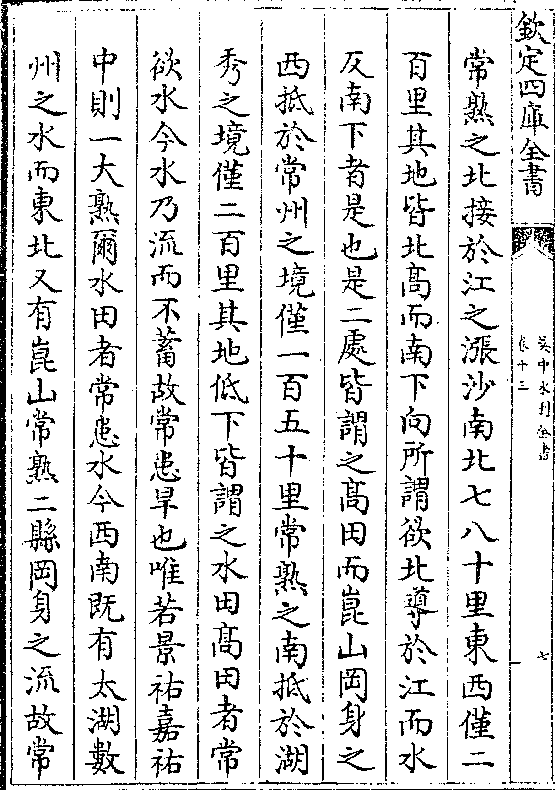 欽定四庫全書
吳中水利全書
卷十三
七
常熟之北接於江之漲沙南北七八十里東西僅二
百里其地皆北髙而南下向所謂欲北導於江而水
反南下者是也是二處皆謂之髙田而崑山岡身之
西抵於常州之境僅一百五十里常熟之南抵於湖
秀之境僅二百里其地低下皆謂之水田髙田者常
欲水今水乃流而不蓄故常患旱也唯若景祐嘉祐
中則一大熟爾水田者常患水今西南既有太湖數
州之水而東北又有崑山常熟二縣岡身之流故常